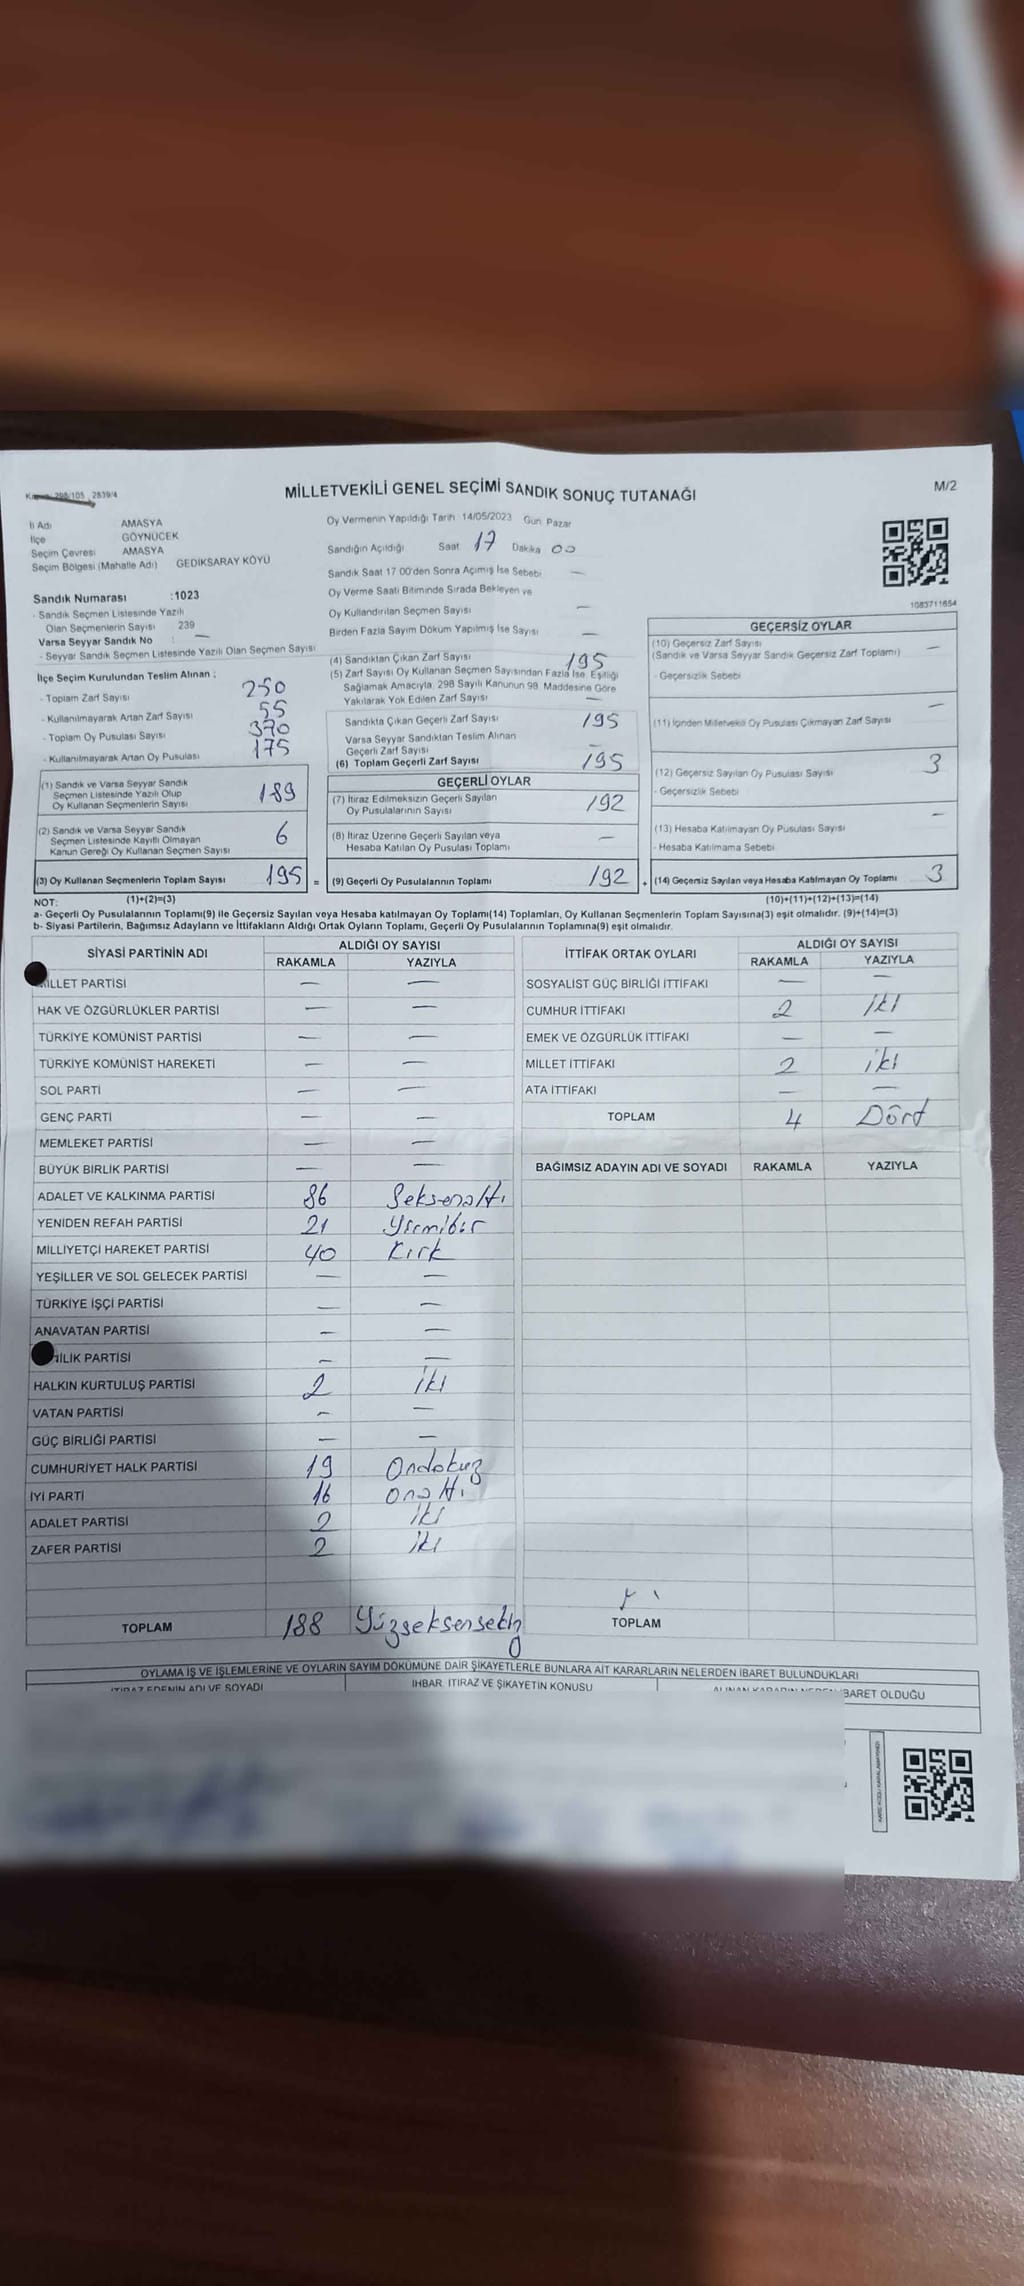 2839/4
MİLLETVEKİLİ GENEL SEÇİMİ SANDIK SONUÇ TUTANAĞI
M/2
İl Adı AMASYA
İlçe GÖYNÜCEK
Seçim Çevresi AMASYA
Seçim Bölgesi (Mahalle Adı) GEDİKSARAY KÖYÜ
Sandık Numarası :1023
- Sandık Seçmen Listesinde Yazılı
Olan Seçmenlerin Sayısı 239
Varsa Seyyar Sandık No : —
- Seyyar Sandık Seçmen Listesinde Yazılı Olan Seçmen Sayısı
İlçe Seçim Kurulundan Teslim Alınan :
- Toplam Zarf Sayısı 250
- Kullanılmayarak Artan Zarf Sayısı 55
- Toplam Oy Pusulası Sayısı 370
- Kullanılmayarak Artan Oy Pusulası 175
(1) Sandık ve Varsa Seyyar Sandık
Seçmen Listesinde Yazılı Olup
Oy Kullanan Seçmenlerin Sayısı 189
(2) Sandık ve Varsa Seyyar Sandık
Seçmen Listesinde Kayıtlı Olmayan
Kanun Gereği Oy Kullanan Seçmen Sayısı 6
(3) Oy Kullanan Seçmenlerin Toplam Sayısı 195 =
Oy Vermenin Yapıldığı Tarih 14/05/2023 Gün Pazar
Sandığın Açıldığı Saat 17 Dakika 00
Sandık Saat 17 00'den Sonra Açılmış İse Sebebi —
Oy Verme Saati Bitiminde Sırada Bekleyen ve
Oy Kullandırılan Seçmen Sayısı —
Birden Fazla Sayım Döküm Yapılmış İse Sayısı —
(4) Sandıktan Çıkan Zarf Sayısı 195
(5) Zarf Sayısı Oy Kullanan Seçmen Sayısından Fazla İse, Eşitliği
Sağlamak Amacıyla, 298 Sayılı Kanunun 98. Maddesine Göre
Yakılarak Yok Edilen Zarf Sayısı —
Sandıkta Çıkan Geçerli Zarf Sayısı 195
Varsa Seyyar Sandıktan Teslim Alınan
Geçerli Zarf Sayısı —
(6) Toplam Geçerli Zarf Sayısı 195
GEÇERLİ OYLAR
(7) İtiraz Edilmeksizin Geçerli Sayılan
Oy Pusulalarının Sayısı 192
(8) İtiraz Üzerine Geçerli Sayılan veya
Hesaba Katılan Oy Pusulası Toplamı —
(9) Geçerli Oy Pusulalarının Toplamı 192 +
1083711654
GEÇERSİZ OYLAR
(10) Geçersiz Zarf Sayısı —
(Sandık ve Varsa Seyyar Sandık Geçersiz Zarf Toplamı)
- Geçersizlik Sebebi
(11) İçinden Milletvekili Oy Pusulası Çıkmayan Zarf Sayısı —
(12) Geçersiz Sayılan Oy Pusulası Sayısı 3
- Geçersizlik Sebebi
(13) Hesaba Katılmayan Oy Pusulası Sayısı —
- Hesaba Katılmama Sebebi
(14) Geçersiz Sayılan veya Hesaba Katılmayan Oy Toplamı 3
NOT: (1)+(2)=(3) (10)+(11)+(12)+(13)=(14)
a- Geçerli Oy Pusulalarının Toplamı(9) ile Geçersiz Sayılan veya Hesaba katılmayan Oy Toplamı(14) Toplamları, Oy Kullanan Seçmenlerin Toplam Sayısına(3) eşit olmalıdır. (9)+(14)=(3)
b- Siyasi Partilerin, Bağımsız Adayların ve İttifakların Aldığı Ortak Oyların Toplamı, Geçerli Oy Pusulalarının Toplamına(9) eşit olmalıdır.
SİYASİ PARTİNİN ADI ALDIĞI OY SAYISI
RAKAMLA YAZIYLA
MİLLET PARTİSİ — —
HAK VE ÖZGÜRLÜKLER PARTİSİ — —
TÜRKİYE KOMÜNİST PARTİSİ — —
TÜRKİYE KOMÜNİST HAREKETİ — —
SOL PARTİ — —
GENÇ PARTİ — —
MEMLEKET PARTİSİ — —
BÜYÜK BİRLİK PARTİSİ — —
ADALET VE KALKINMA PARTİSİ 86 Seksenaltı
YENİDEN REFAH PARTİSİ 21 Yirmibir
MİLLİYETÇİ HAREKET PARTİSİ 40 Kırk
YEŞİLLER VE SOL GELECEK PARTİSİ — —
TÜRKİYE İŞÇİ PARTİSİ — —
ANAVATAN PARTİSİ — —
İLİK PARTİSİ — —
HALKIN KURTULUŞ PARTİSİ 2 iki
VATAN PARTİSİ — —
GÜÇ BİRLİĞİ PARTİSİ — —
CUMHURİYET HALK PARTİSİ 19 Ondokuz
İYİ PARTİ 16 onaltı
ADALET PARTİSİ 2 iki
ZAFER PARTİSİ 2 iki
TOPLAM 188 Yüzseksensekiz
İTTİFAK ORTAK OYLARI ALDIĞI OY SAYISI
RAKAMLA YAZIYLA
SOSYALİST GÜÇ BİRLİĞİ İTTİFAKI — —
CUMHUR İTTİFAKI 2 iki
EMEK VE ÖZGÜRLÜK İTTİFAKI — —
MİLLET İTTİFAKI 2 iki
ATA İTTİFAKI — —
TOPLAM 4 Dört
BAĞIMSIZ ADAYIN ADI VE SOYADI RAKAMLA YAZIYLA
TOPLAM
OYLAMA İŞ VE İŞLEMLERİNE VE OYLARIN SAYIM DÖKÜMÜNE DAİR ŞİKAYETLERLE BUNLARA AİT KARARLARIN NELERDEN İBARET BULUNDUKLARI
İTİRAZ EDENİN ADI VE SOYADI
İHBAR, İTİRAZ VE ŞİKAYETİN KONUSU
ALINAN KARARIN NEDEN İBARET OLDUĞU